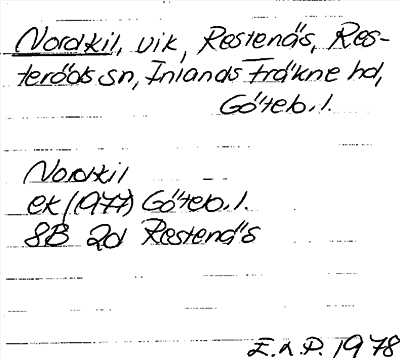 Nordkil, vik, Restenäs, Res-
teröds sn, Inlands Fräkne hd,
Göteb. l.
Nordkil
ek (1977) Göteb. l.
8B 2d Restenäs
E.L.P. 1978